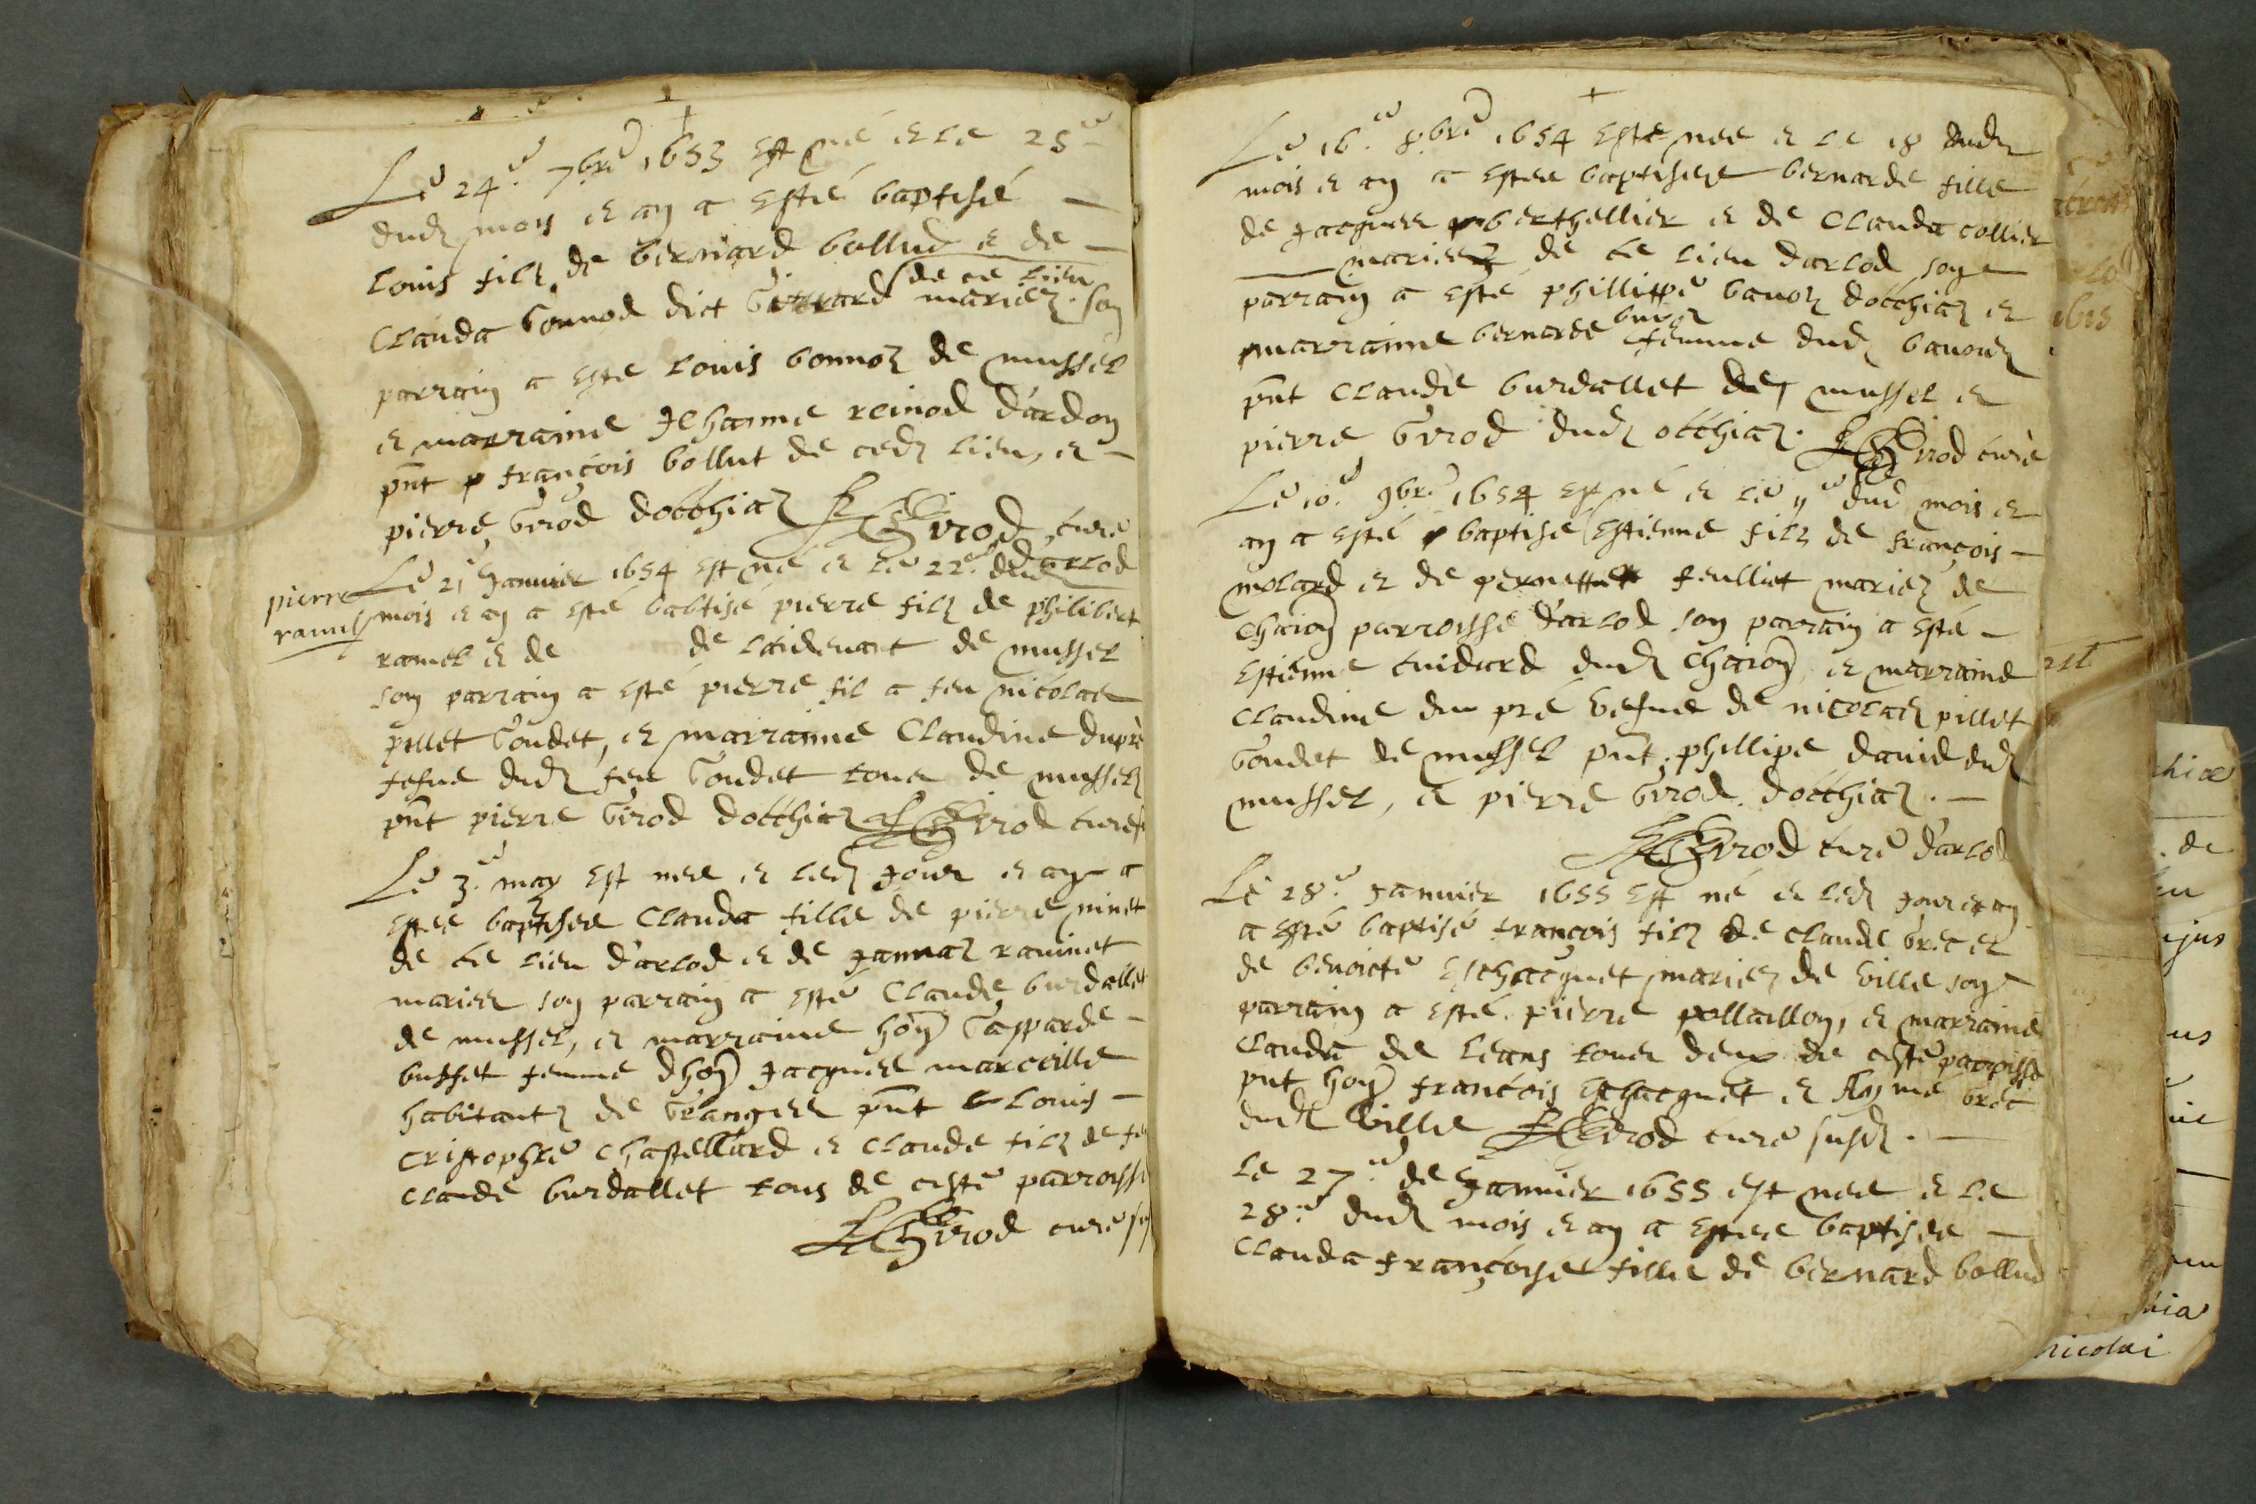 Le 24e 7bre 1653 est né et le 25e
dudz mois et an a esté baptisé
Louis filz de bernard bollud et de
de ce lieu
Clauda bonnod dict mariez. son
parrain a este Louis bonnoz de mussel
et marraine Jehanne reinod d'ardon
pnt françois bollut de cedz lieu, et
pierre Girod docthiaz Girod curé
d'arlod
Le 21 Janvier 1654 est né et le 22e dudz
pierre
ramel
mois et an a esté babtisé pierre filz de philibert
ramel et de de laidevant de mussel
son parrain a esté pierre fil a feu nicolas
pillet Goudet, et marraine Claudine dupré
fefue dudz feu Goudet tous de musselz
pnt pierre Girod docthiaz Girod curé
Le 3e may est nee et ledz jour et an a
estee baptisee Clauda fille de pierre ninet
de ce lieu d'arlod et de Jannaz raminet
mariez son parrain a esté Claude burdallet
de mussel, et marraine hon Gasparde
busset femme d'hon Jacques marceille
habitantz de Granges pnt Louis
Cristophle Chastellard et Claude filz de feu
Claude burdallet tous de ceste parroisse
Girod curé
Le 16e 8bre 1654 este nee et le 18 dudz
mois et an a estee baptisee bernarde fille
de Jacques berthellier et de Clauda collier
mariez de ce lieu darlod son
parrain a esté phillippe bavoz docthiaz et
marraine bernarde femme dudz bavouz
pnt Claude burdallet de mussel et
pierre Girod dudz octhiaz. Girod curé
Le 10e 9bre 1654 est né et le 11e dud mois et
an a esté baptise Estienne filz de françois
molard et de pernette feulliet mariez de
Chaion parroisse d'arlod son parrain a esté
Estienne cuidard dudz Chaion et marraine
Claudine du pré vefue de nicolas pillet
Goudet de mussel pnt phillipe david dudz
mussel, et pierre Girod docthiaz.
Girod curé d'arlod
Le 28e Janvier 1655 est né et ledz jour et an
a esté baptisé françois filz de claude brec et
de benoicte Eschacquet mariez de ville son
parrain a esté pierre pollaillon, et marraine
Clauda de Leans tous deux de ceste parroisse
pnt hon françois Eschacquet et Aymé brec
dudz Ville Girod curé susdz.
Le 27e de Janvier 1655 est nee et le
28e dudz mois et an a estee baptisee
Clauda françoise fille de bernard bollud
nicolai